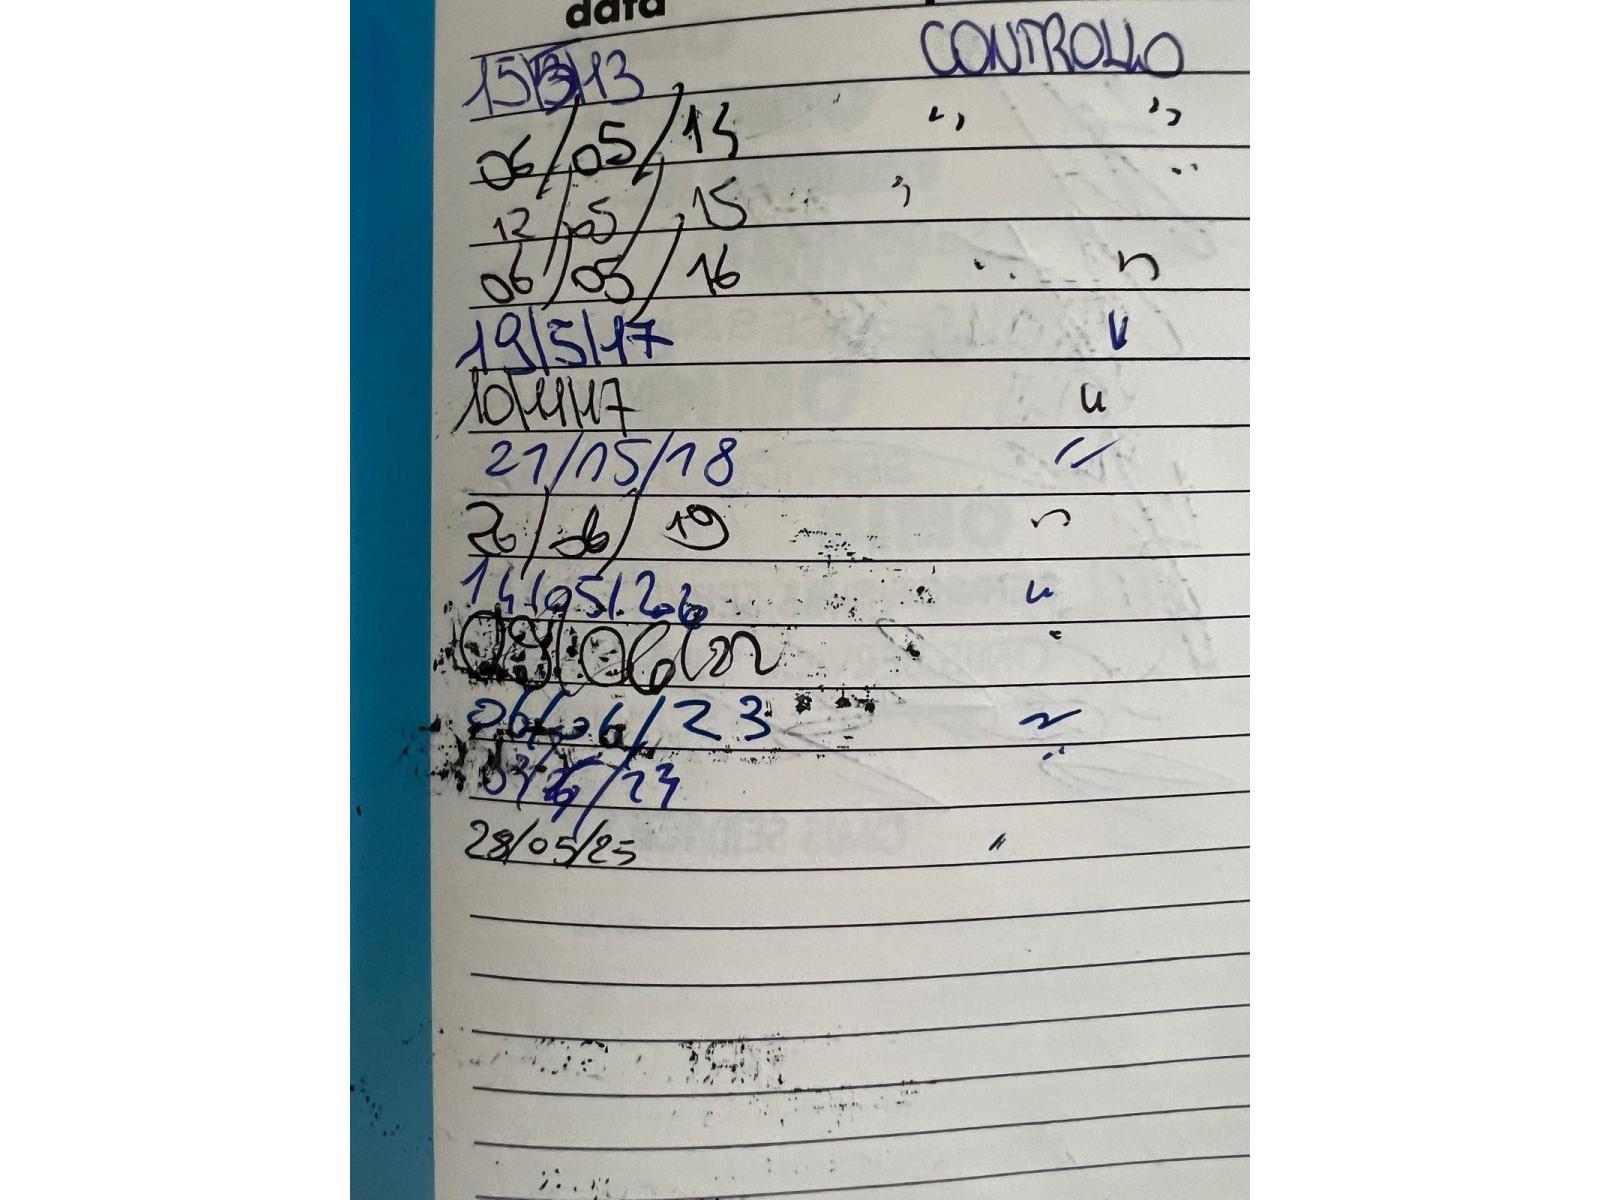 data
15/3/13 CONTROLLO
06/05/14 " "
12/05/15 " "
06/05/16 " "
19/5/17 "
10/11/17 "
21/15/18 "
26/06/19 "
14/05/20 "
09/06/22 "
06/06/23 "
"
28/05/25 "